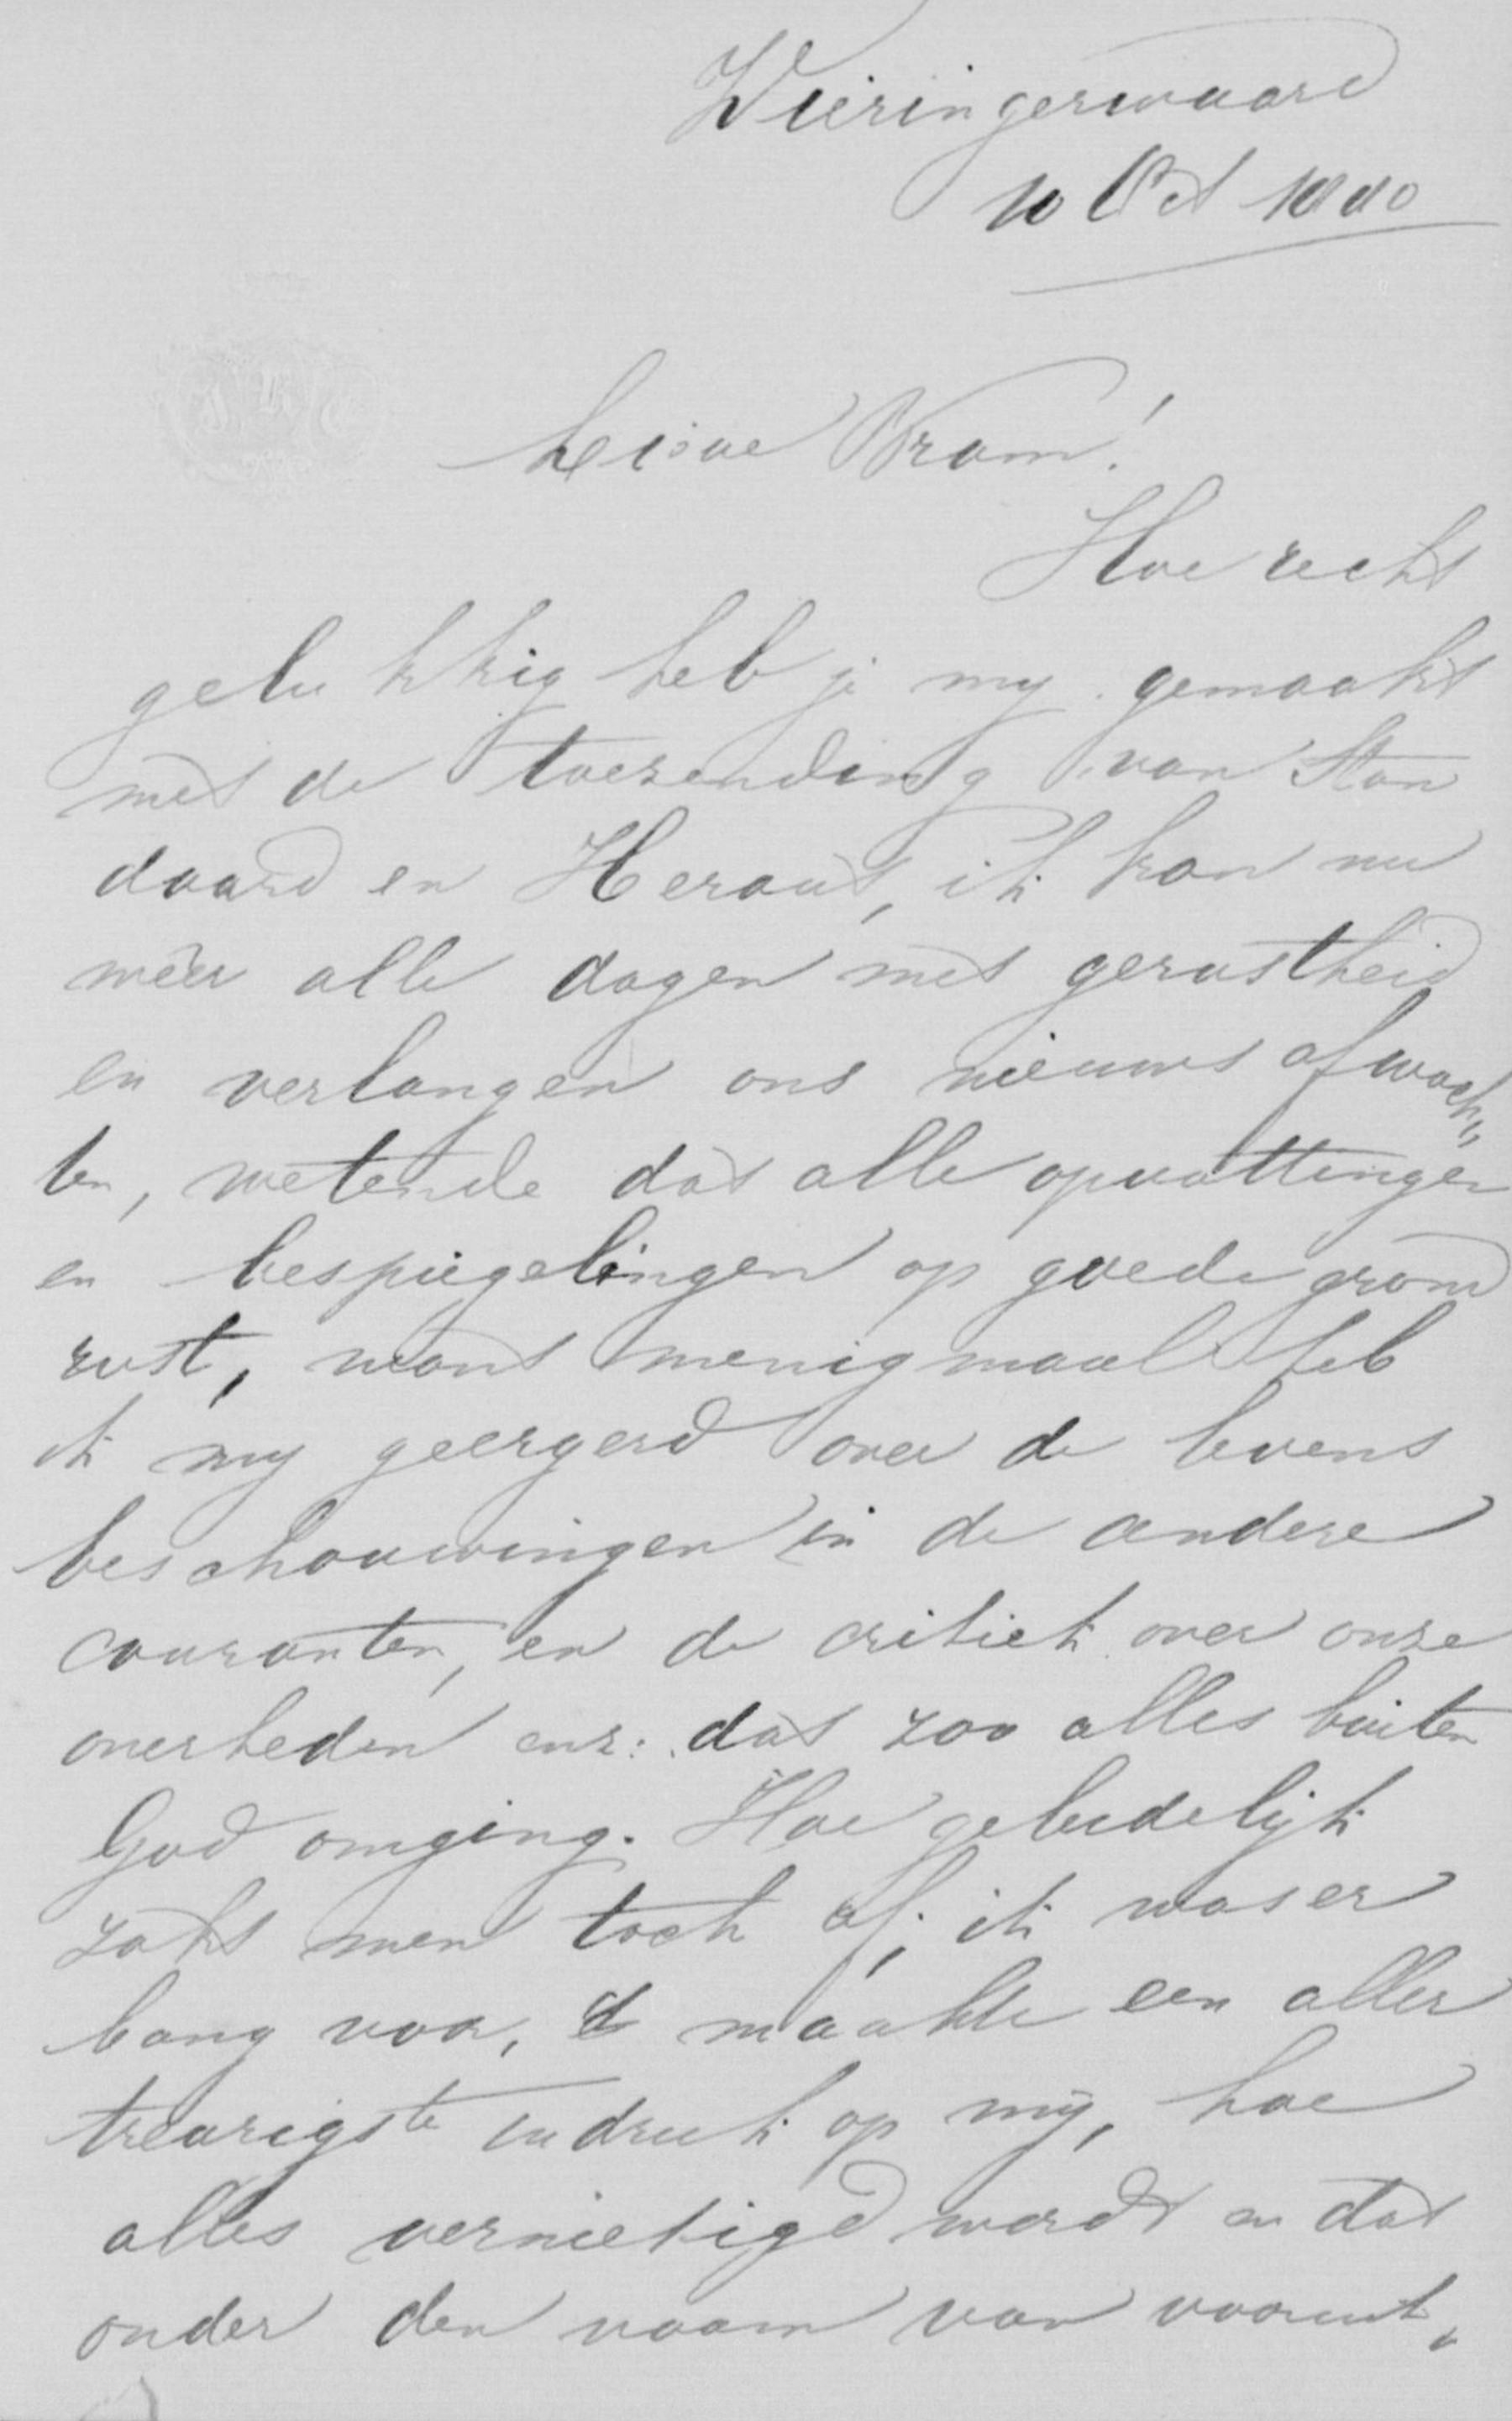 Wieringerwaard
10 Oct 1880
Lieve Bram!
Hoe recht
gelukkig heb je my gemaakt
met de toezending van Stan
daard en Heraut, ik kan nu
mêer alle dagen met gerustheid
en verlangen ons nieuws afwach„
ten, wetende dat alle opvattingen
en bespiegelingen op goede grond
rust, want menigmaal heb
ik my geergerd over de levens
beschouwingen in de andere
couranten, en de critiek over onze
overheden enz: dat zoo alles buiten
God omging. Hoe geleidelijk
zakt men toch af, ik was er
bang voor, 't maakte een aller
treurigste indruk op mij, hoe
alles vernietigd wordt en dat
onder den naam van vooruit„